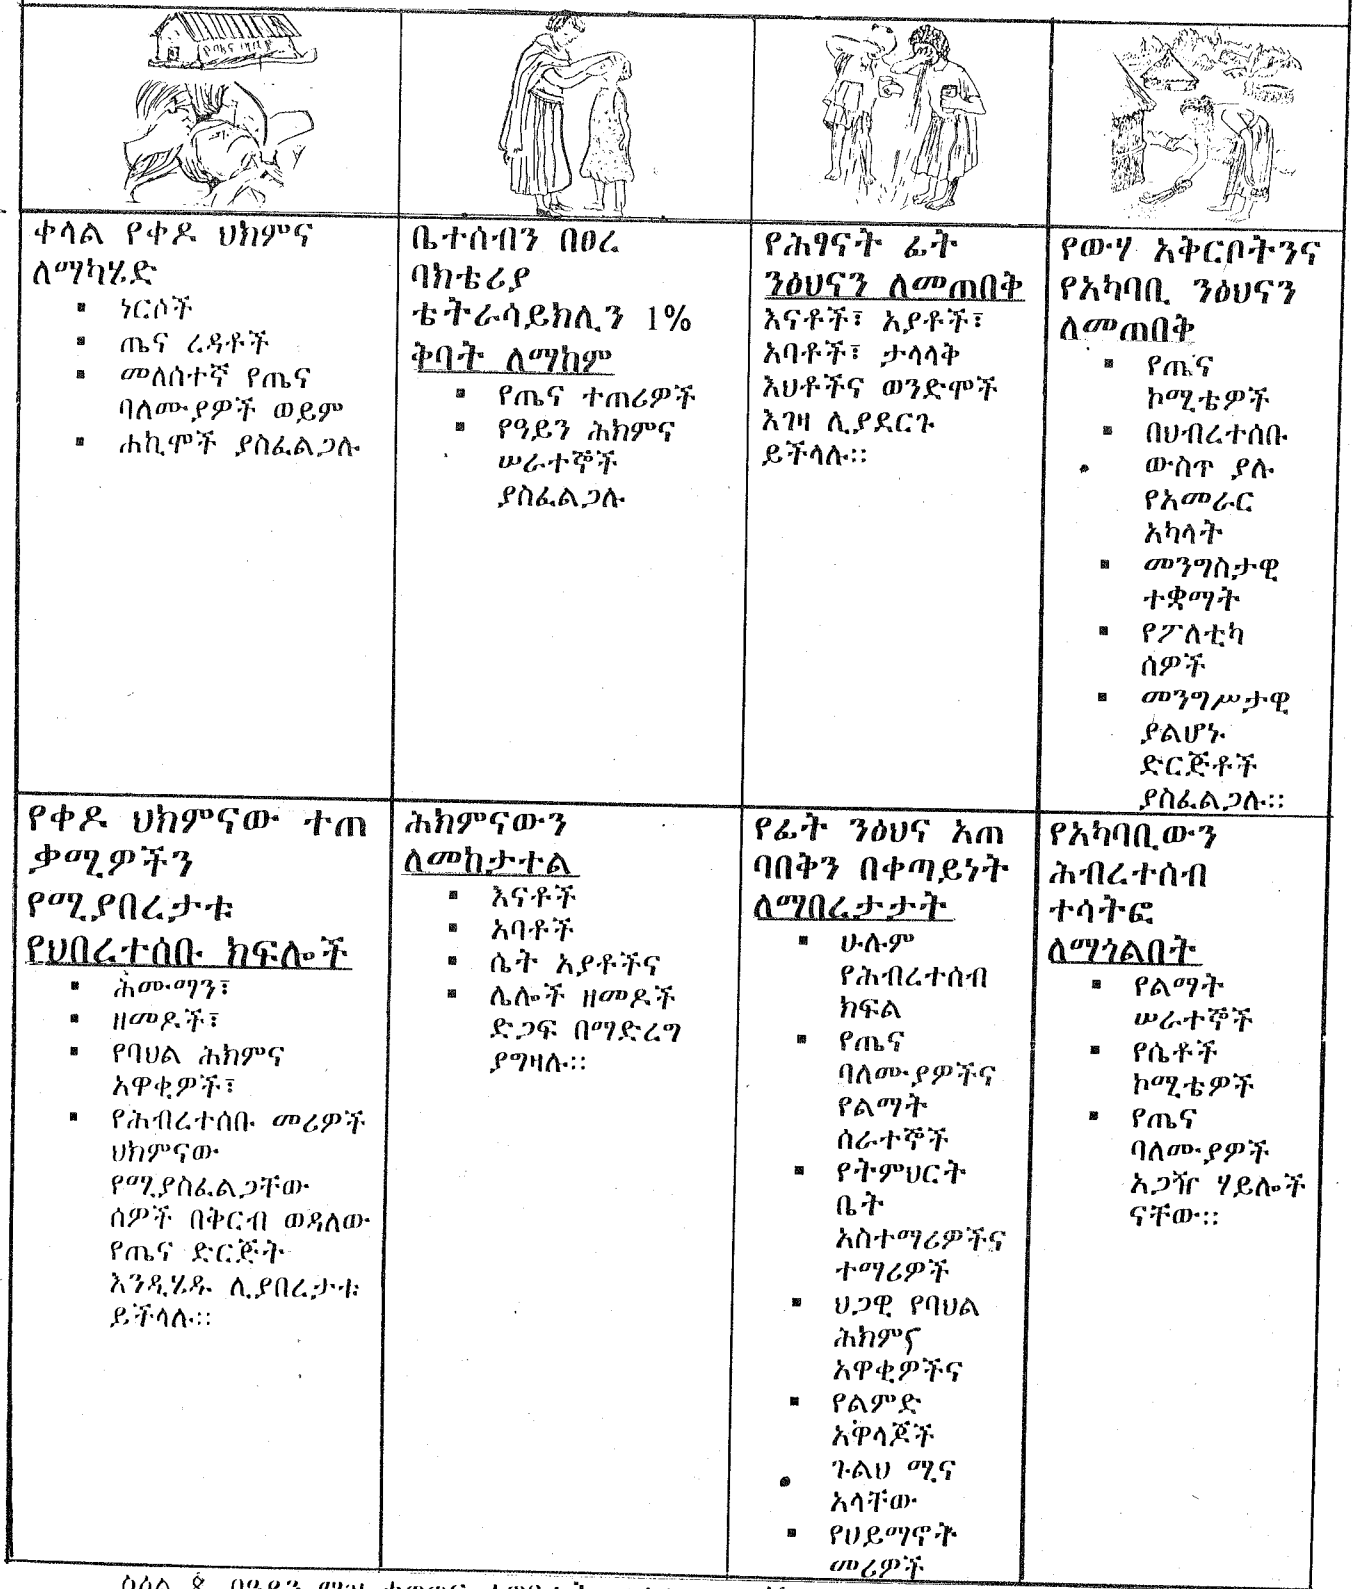 ቀላል የቀዶ ህክምና
ለማካሄድ
▪ ነርሶች
▪ ጤና ረዳቶች
▪ መለስተኛ የጤና
ባለሙያዎች ወይም
▪ ሐኪሞች ያስፈልጋሉ
ቤተሰብን በፀረ
ባክቴሪያ
ቴትራሳይክሊን 1%
ቅባት ለማከም
▪ የጤና ተጠሪዎች
▪ የዓይን ሕክምና
ሠራተኞች
ያስፈልጋሉ
የሕፃናት ፊት
ንፅህናን ለመጠበቅ
እናቶች፣ አያቶች፣
አባቶች፣ ታላላቅ
እህቶችና ወንድሞች
እገዛ ሊያደርጉ
ይችላሉ::
የውሃ አቅርቦትንና
የአካባቢ ንፅህናን
ለመጠበቅ
▪ የጤና
ኮሚቴዎች
▪ በህብረተሰቡ
ውስጥ ያሉ
የአመራር
አካላት
▪ መንግስታዊ
ተቋማት
▪ የፖለቲካ
ሰዎች
▪ መንግሥታዊ
ያልሆኑ
ድርጅቶች
ያስፈልጋሉ::
የቀዶ ህክምናው ተጠ
ቃሚዎችን
የሚያበረታቱ
የህበረተሰቡ ክፍሎች
▪ ሕሙማን፣
▪ ዘመዶች፣
▪ የባህል ሕክምና
አዋቂዎች፣
▪ የሕብረተሰቡ መሪዎች
ህክምናው
የሚያስፈልጋቸው
ሰዎች በቅርብ ወዳለው
የጤና ድርጅት
እንዲሄዱ ሊያበረታቱ
ይችላሉ::
ሕክምናውን
ለመከታተል
▪ እናቶች
▪ አባቶች
▪ ሴት አያቶችና
▪ ሌሎች ዘመዶች
ድጋፍ በማድረግ
ያግዛሉ::
የፊት ንፅህና አጠ
ባበቅን በቀጣይነት
ለማበረታታት
▪ ሁሉም
የሕብረተሰብ
ክፍል
▪ የጤና
ባለሙያዎችና
የልማት
ሰራተኞች
▪ የትምህርት
ቤት
አስተማሪዎችና
ተማሪዎች
▪ ህጋዊ የባህል
ሕክምና
አዋቂዎችና
▪ የልምድ
አዋላጆች
ጉልህ ሚና
አላቸው
▪ የሀይማኖት
መሪዎች
የአካባቢውን
ሕብረተሰብ
ተሳትፎ
ለማጎልበት
▪ የልማት
ሠራተኞች
▪ የሴቶች
ኮሚቴዎች
▪ የጤና
ባለሙያዎች
አጋዥ ሃይሎች
ናቸው::